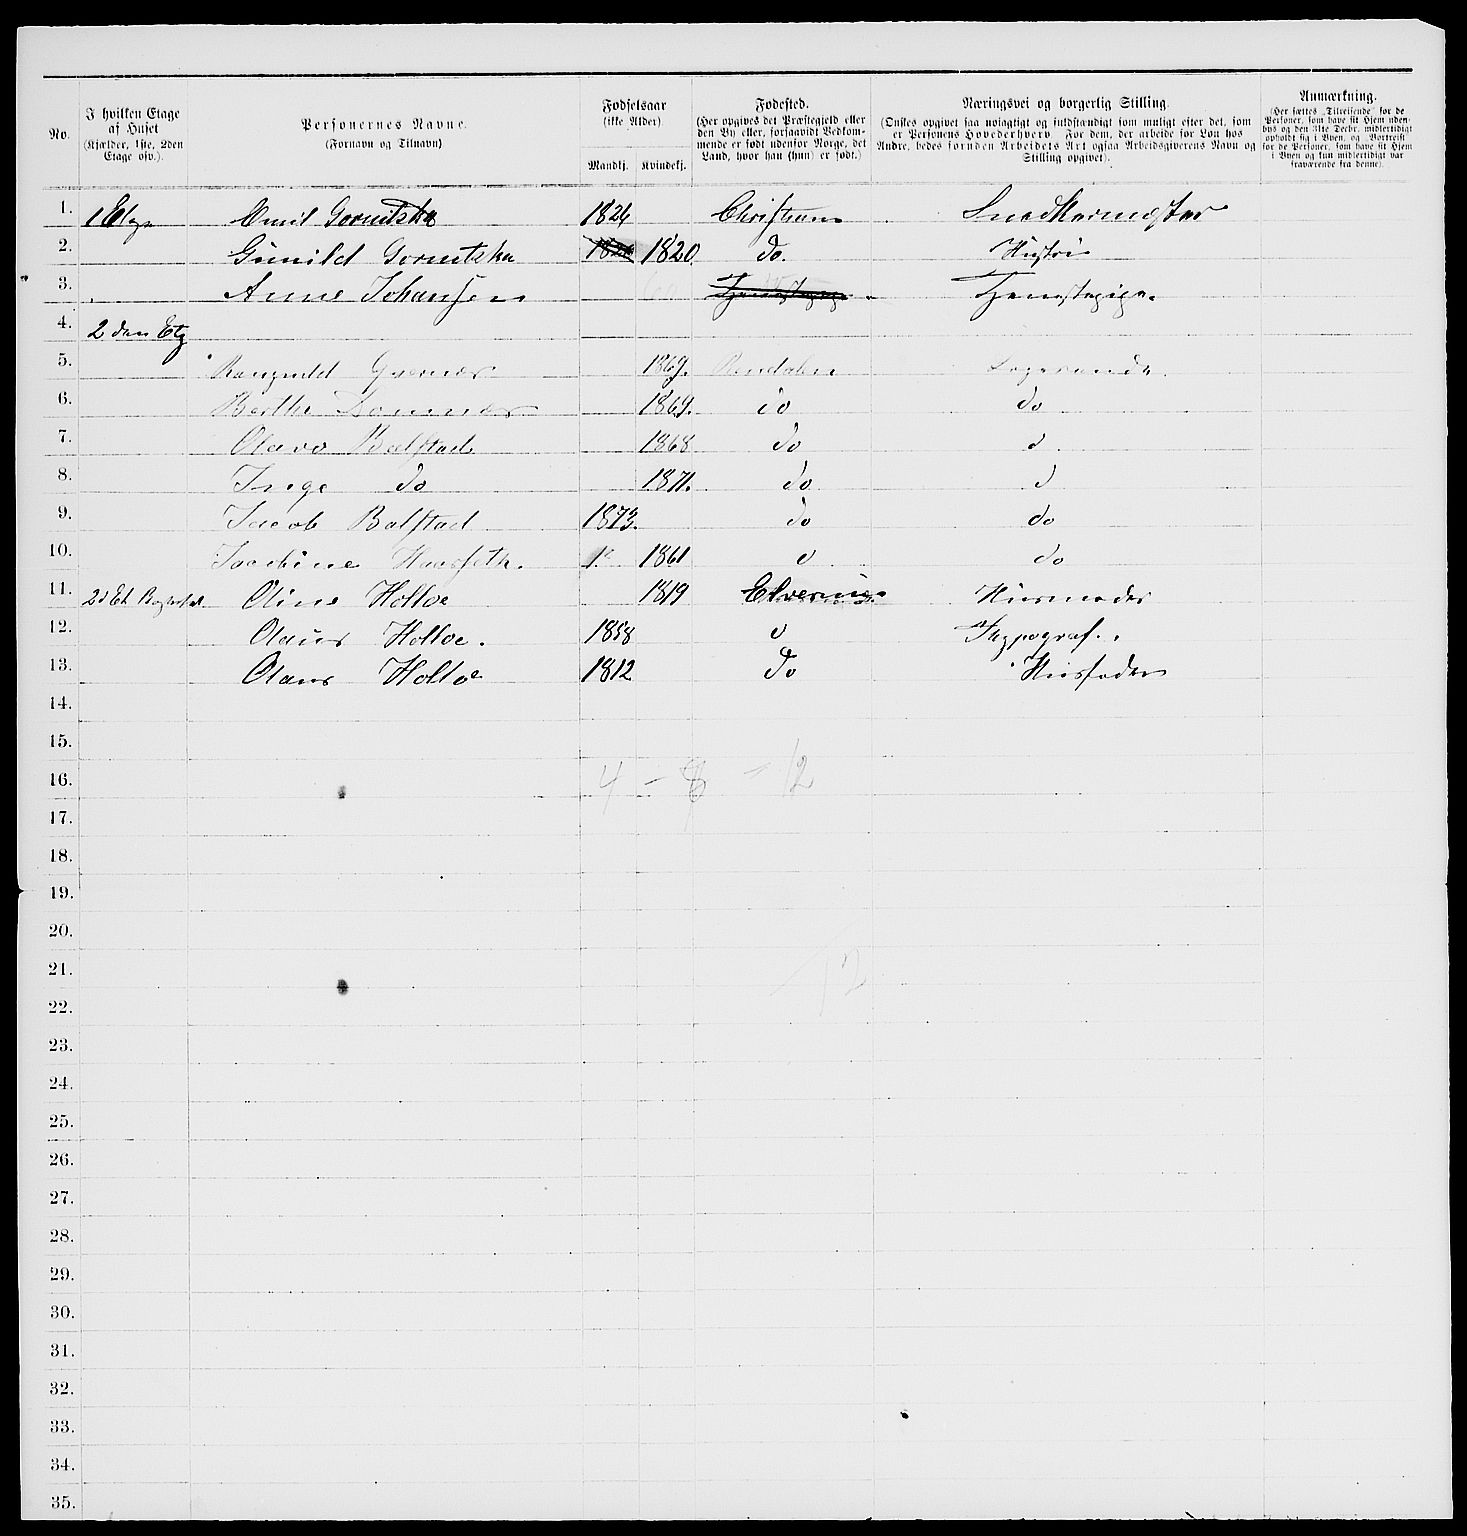 No.
I hvilken Etage af Huset (Kjælder, 1ste, 2den Etage osv.).
Personernes Navne. (Fornavn og Tilnavn)
Fødselsaar (ikke Alder).
Mandkj. Kvindekj.
Fødested. (Her opgives det Præstegjeld eller den By eller, forsaavidt Vedkommende er født udenfor Norge, det Land, hvor han (hun) er født.)
Næringsvei og borgerlig Stilling. (Ønskes opgivet saa nøiagtigt og fuldstændigt som muligt efter det, som er Personens Hovederhverv. For dem, der arbeide for Løn hos Andre, bedes foruden Arbeidets Art ogsaa Arbeidsgiverens Navn og Stilling opgivet).
Anmærkning. (Her sættes „Tilreisende" for de Personer, som have sit Hjem udenbys og den 31te Decbr. midlertidigt opholdt sig i Byen, og „Bortreist" for de Personer, som have sit Hjem i Byen og kun midlertidigt var fraværende fra denne).
1. 1 Etge Emil Gornitzka 1826 Christiania Snedkermester
2. Gunild Gornitzka 1820 do. Hustru
3. Anne Johansen Tjenestepige Tjenestepige.
4. 2 den Etg
5. 1869. Rendalen
6. Berthe 1869. do do
7. Olava Balstad 1868 do d
8. Inge do 1871. do d
9. Jacob Balstad 1873. do do
10. 1861 d do
11. 2d Et Oline Holloe 1819 Elverum Husmoder
12. Olaus Holloe. 1858 d Typograf.
13. Olaus Holloe 1812 do Husfader
14.
15.
16. 4 - 8 - 12
17.
18.
19.
20.
21. 12
22.
23.
24.
25.
26.
27.
28.
29.
30.
31.
32.
33.
34.
35.